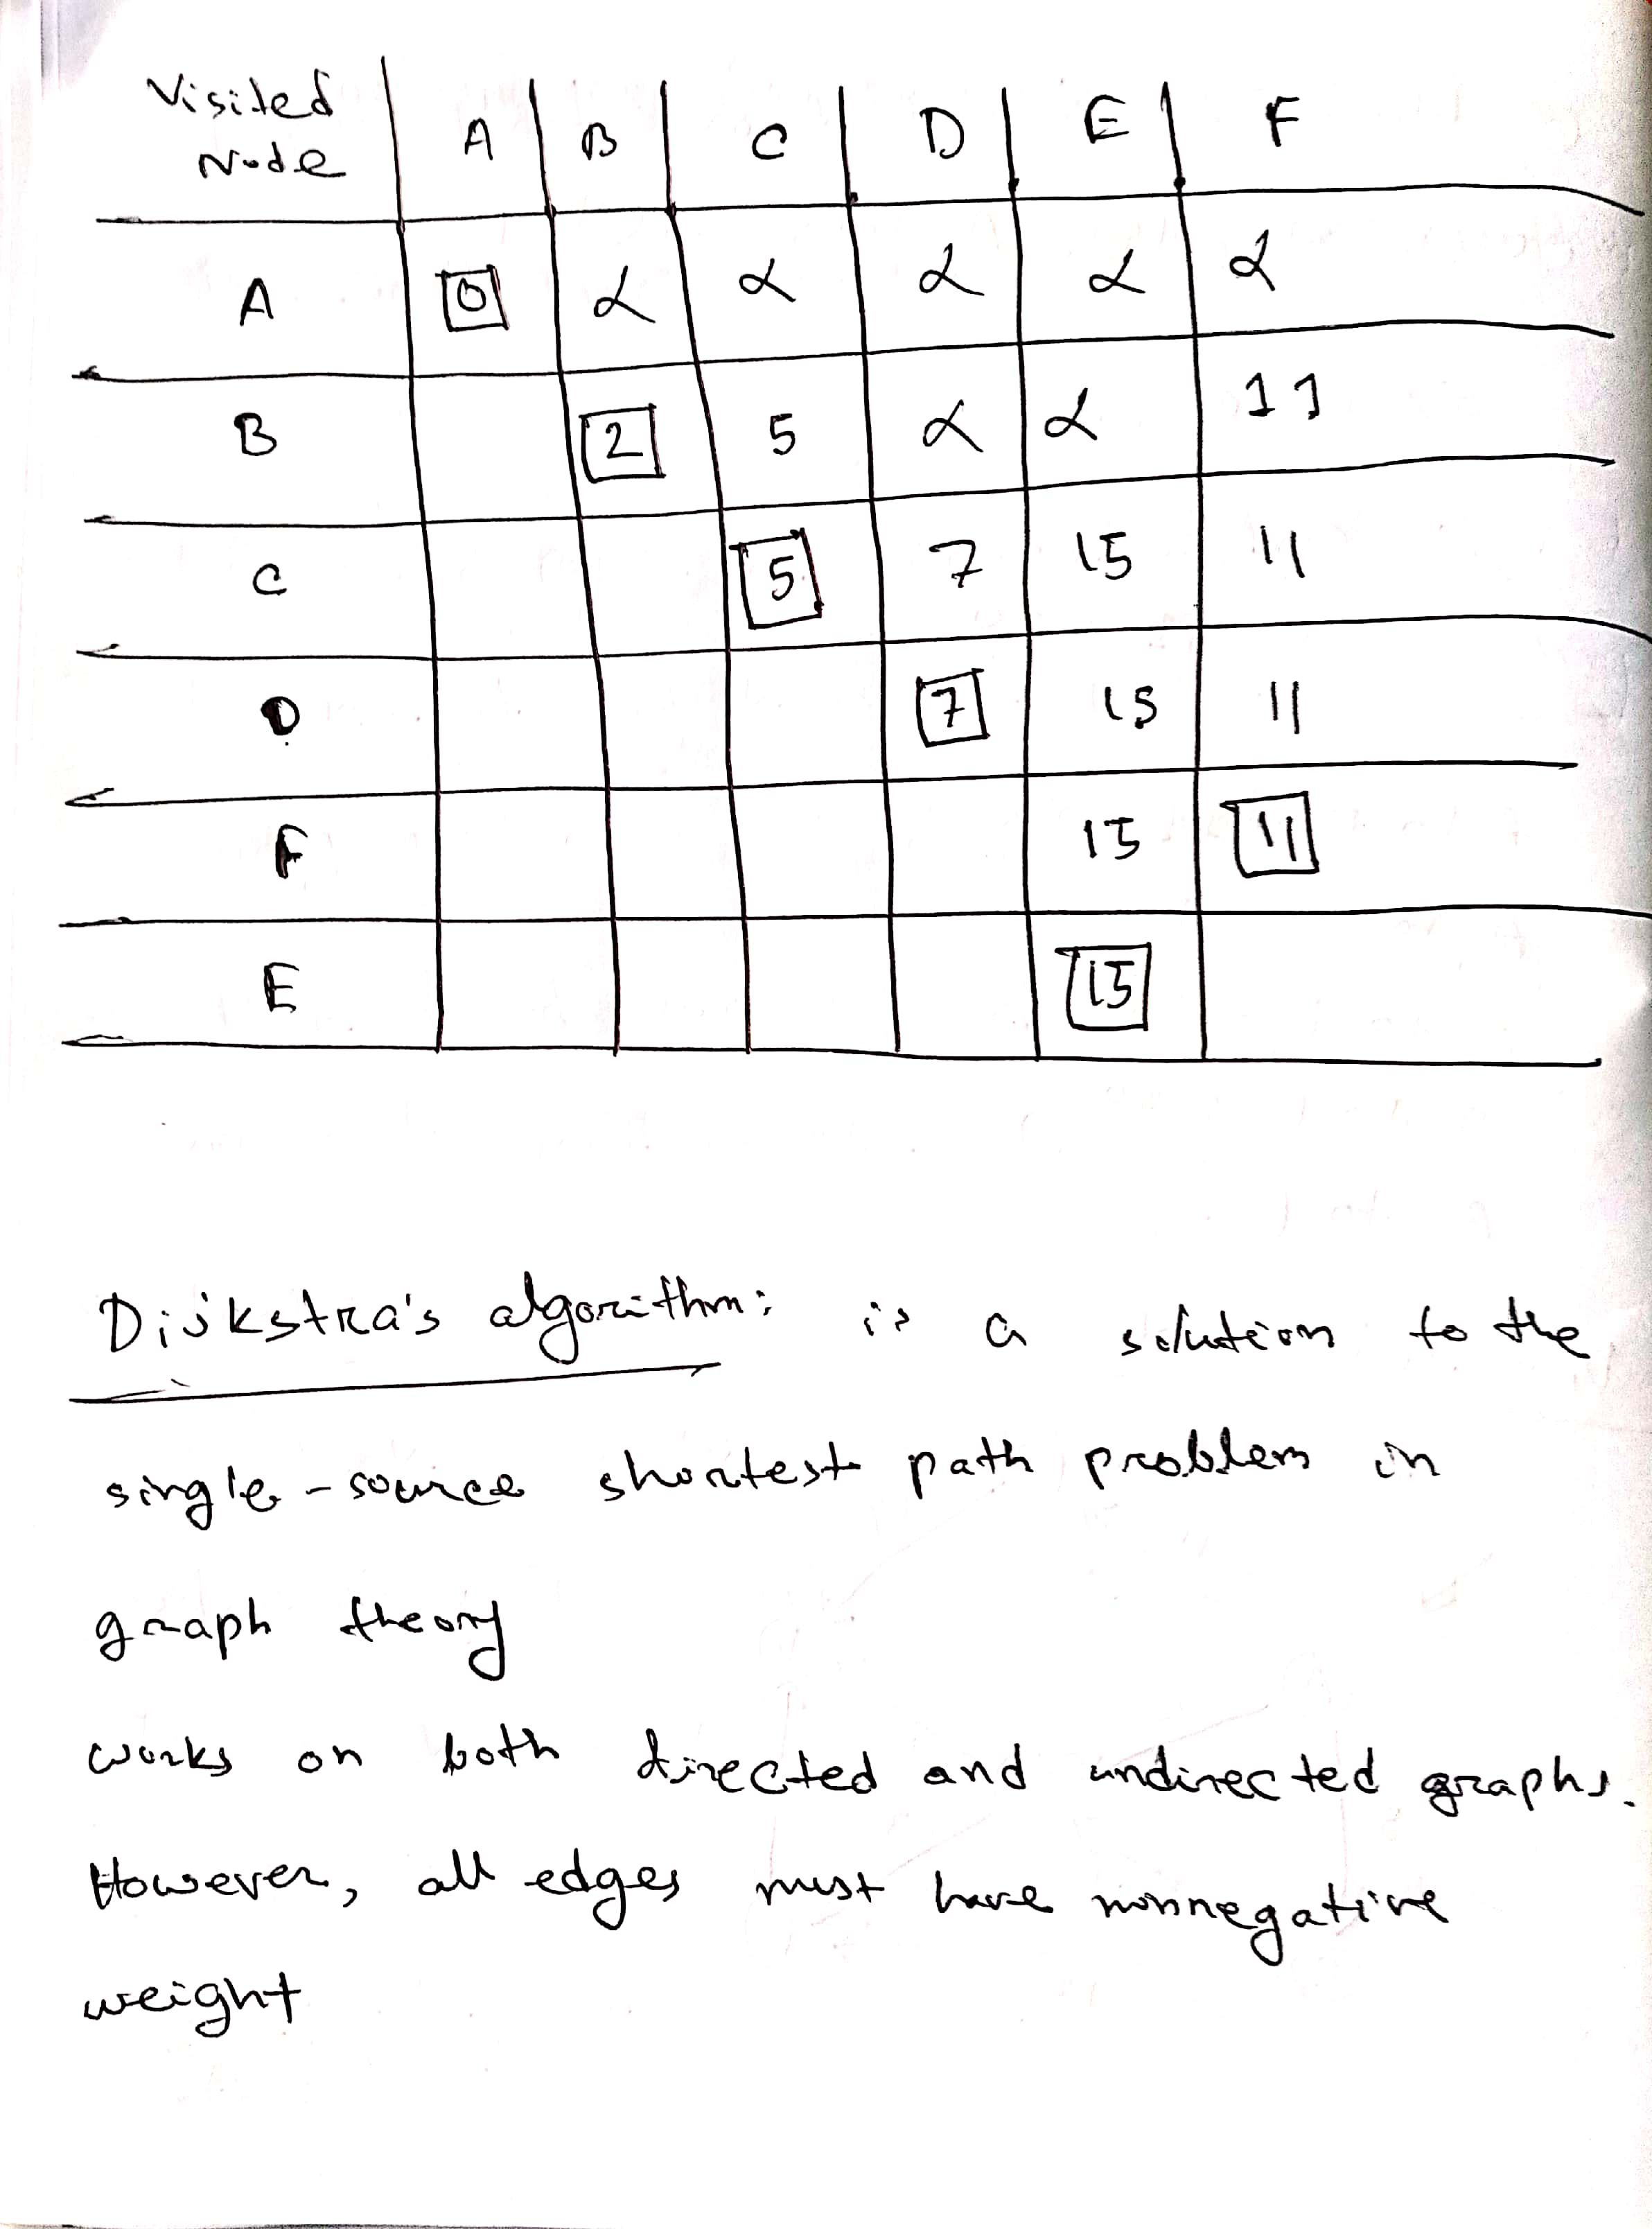 Visited Node | A | B | C | D | E | F
A | 0 | α | α | α | α | α
B | | 2 | 5 | α | α | 11
C | | | 5 | 7 | 15 | 11
D | | | | 7 | 15 | 11
F | | | | | 15 | 11
E | | | | | 15 |
Dijkstra's algorithm: is a solution to the
single-source shortest path problem in
graph theory
works on both directed and undirected graphs.
However, all edges must have nonnegative
weight